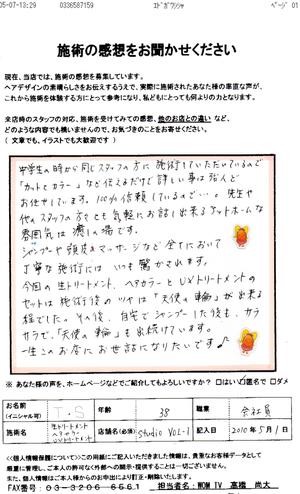 05-07-13:29 0336587159 エドガワシャ ページ 01
施術の感想をお聞かせください
現在、当店では、施術の感想を募集しています。
ヘアデザインの素晴らしさをお伝えするうえで、実際に施術されたあなた様の率直な声が、
これから施術を体験する方にとって参考になり、私どもにとっても何よりの力となります。
来店時のスタッフの対応、施術を受けてみての感想、他のお店との違い など、
どのような内容でも構いませんので、お気づきのことをお寄せください。
( 文章でも、イラストでも大歓迎です )
中学生の時から同じスタッフの方に施術していただいているので
「カットとカラー」など伝えるだけで詳しい事は悩んと
お任せしています。100%信頼しているので…。先生や
他のスタッフの方々とも気軽にお話し出来るアットホームな
雰囲気は癒しの場です。
シャンプーや頭皮マッサージなど全てにおいて
丁寧な施術には いつも驚かされます。
今回の生トリートメント、ヘアカラーとUVトリートメントの
セットは施術後のツヤは「天使の輪」が出来る
程でした。その後、自宅でシャンプーした後も、サラ
サラで、「天使の輪」も出続けています。
一生このお店にお世話になりたいです♪
※ あなた様の声を、ホームページなどでご紹介してもよろしいですか? □はい □匿名で □ダメ
お名前
(イニシャル可) T・S 年齢 38 職業 会社員
施術名 生トリートメント
ヘアカラー
UVトリートメント 店舗名(必須) studio VOL-1 記入日 2010年5月1日
<個人情報保護について>この用紙にご記入いただきました情報は、貴重なお客様データとして
厳重に管理し、ご本人の許可なく外部への開示・提供することは一切ございません。
また、個人情報はご本人様からのお申出により訂正・削除いたします。
FAX番号 03-3206-6661 担当者名:WOW TV 高橋 尚大